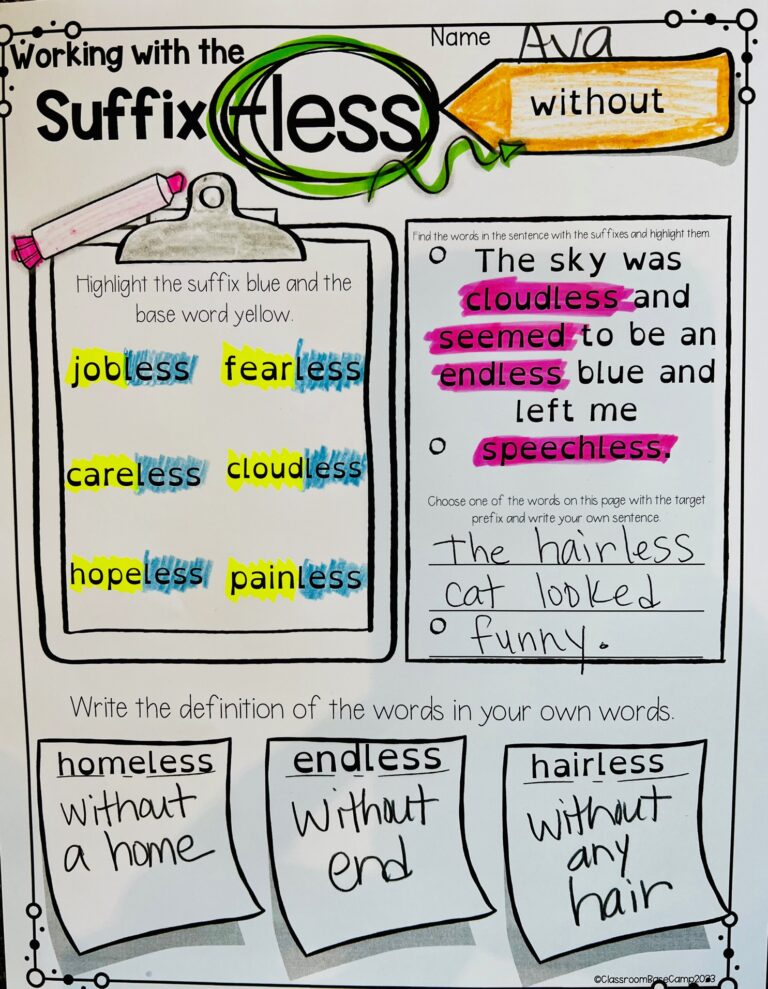 Working with the
Name Ava
Suffix -less
without
Highlight the suffix blue and the
base word yellow.
jobless fearless
careless cloudless
hopeless painless
Find the words in the sentence with the suffixes and highlight them.
The sky was
cloudless and
seemed to be an
endless blue and
left me
speechless.
Choose one of the words on this page with the target
prefix and write your own sentence.
The hairless
cat looked
funny.
Write the definition of the words in your own words.
homeless
without
a home
endless
without
end
hairless
without
any
hair
©ClassroomBaseCamp2023